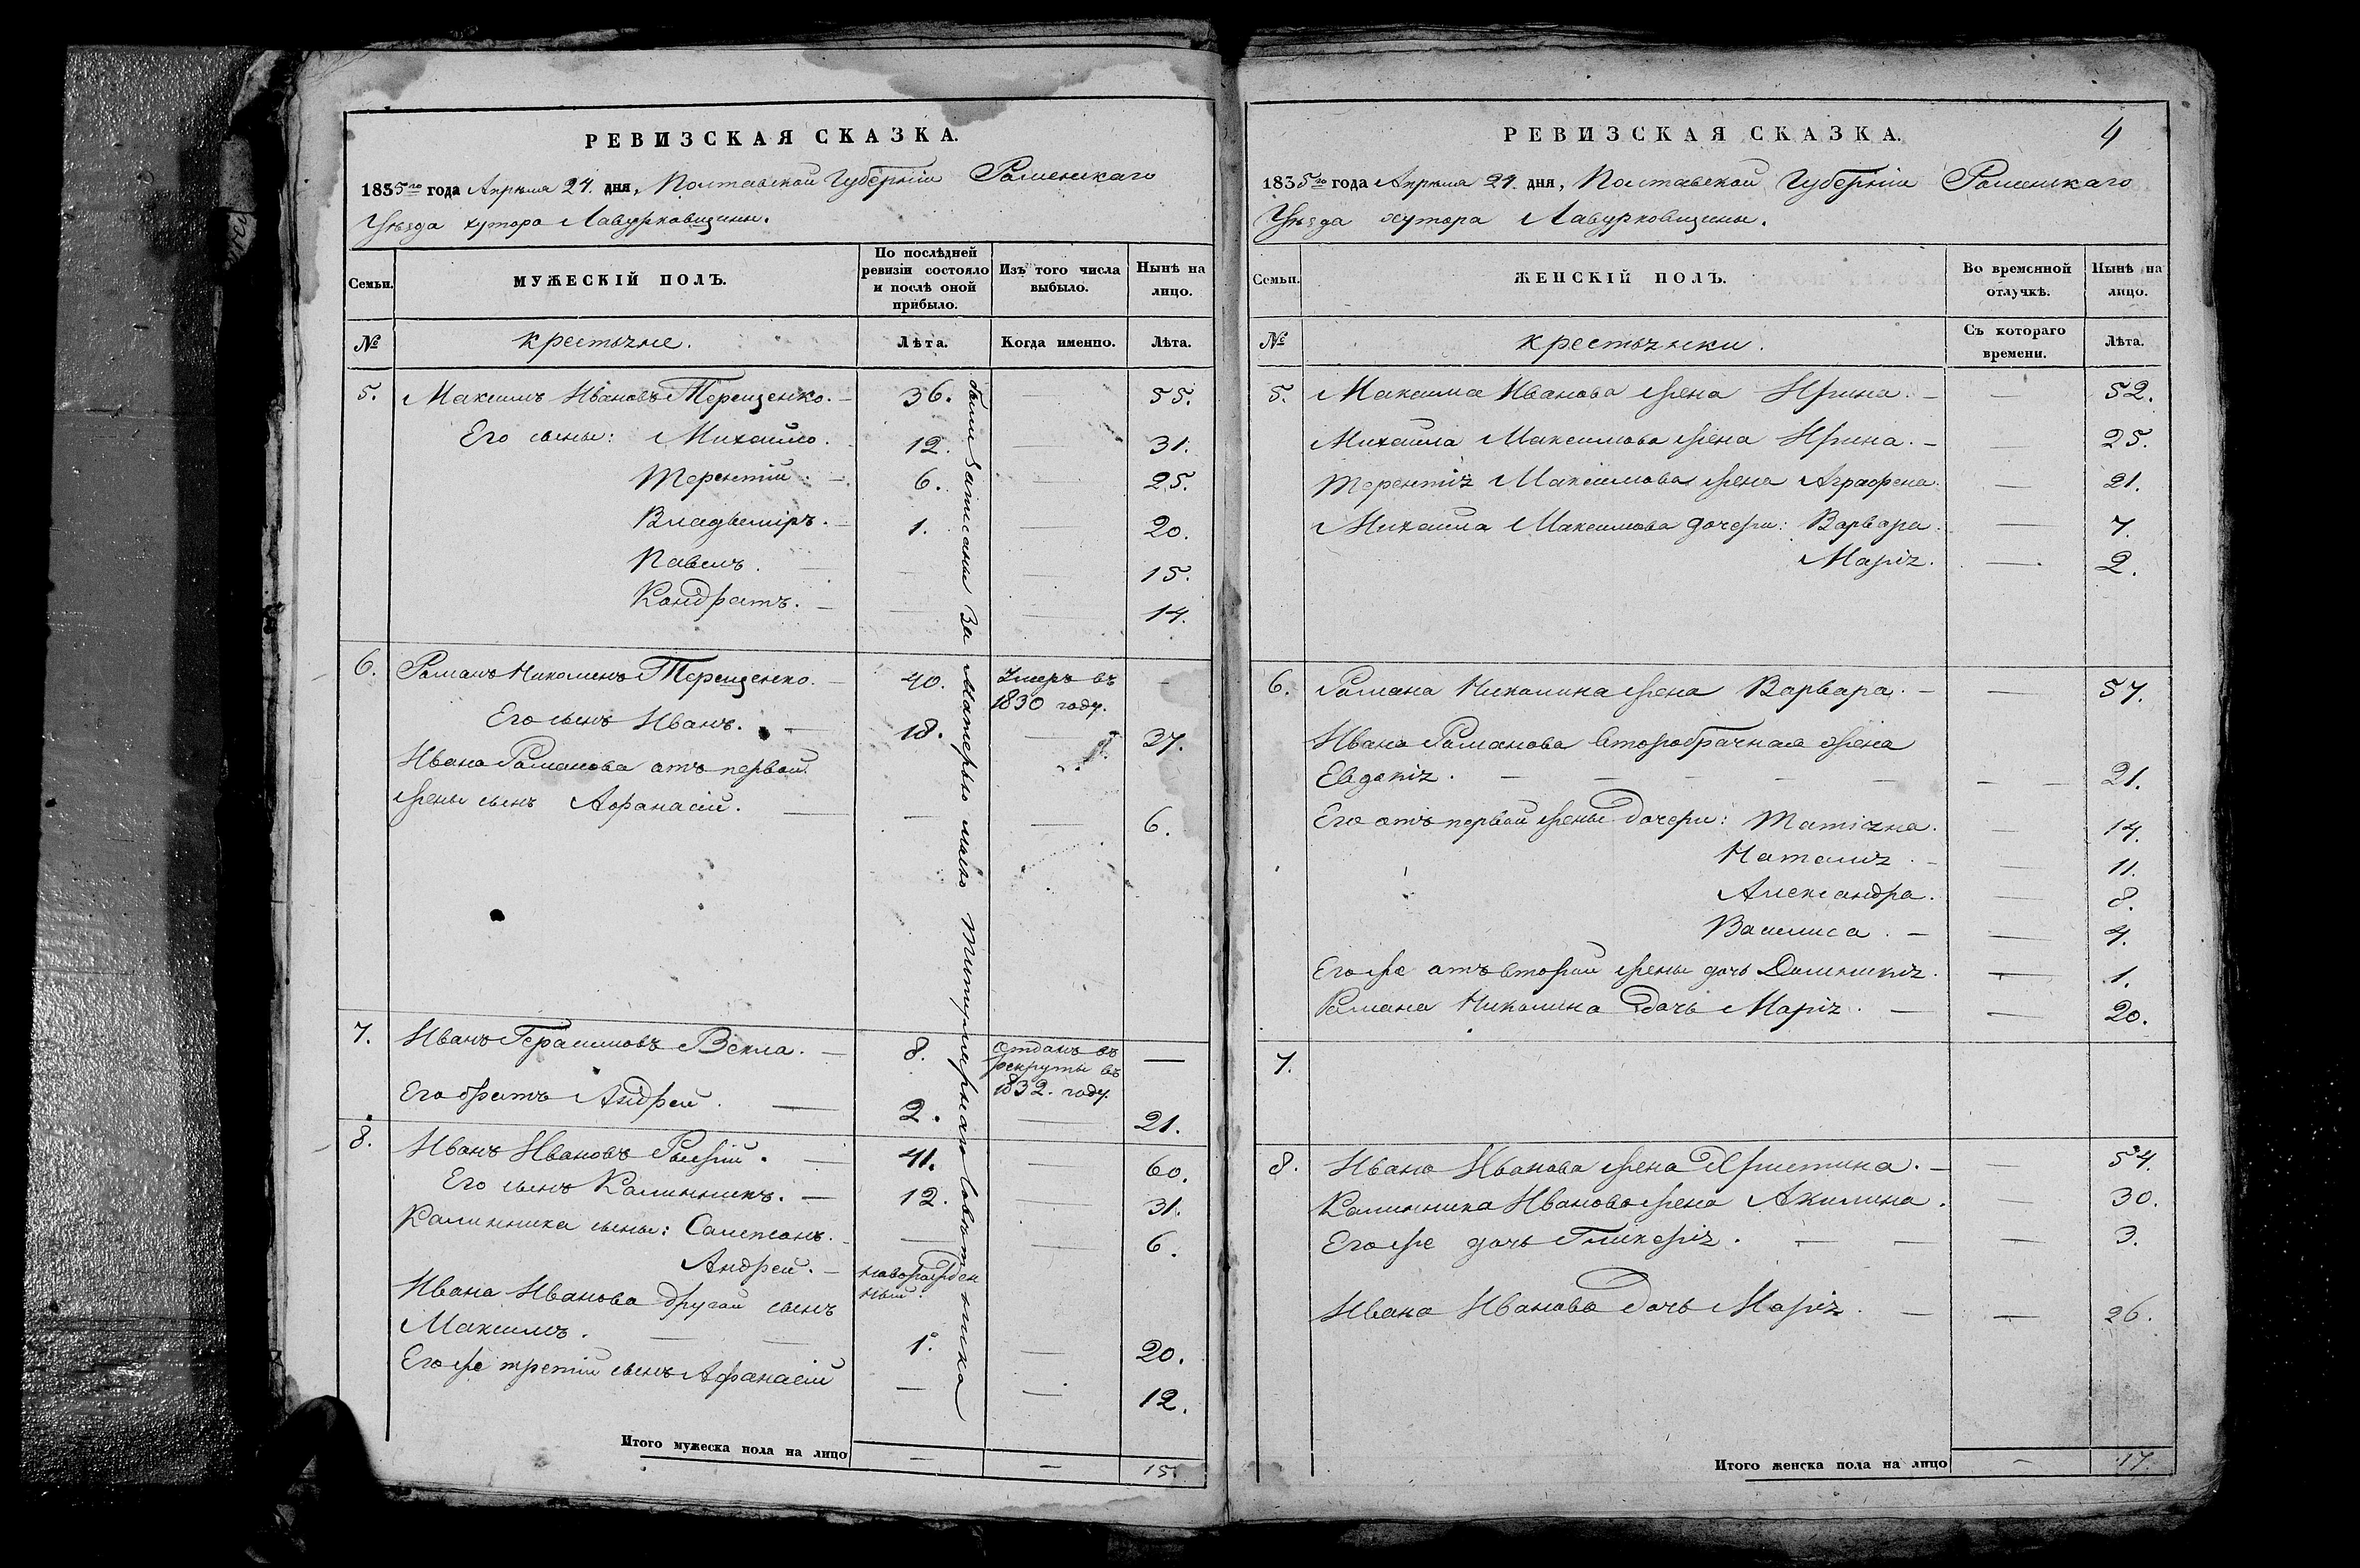 РЕВИЗСКАЯ СКАЗКА.
1835го года Апреля 27. дня, Полтавской Губерніи Роменскаго
Уѣзда хутора Лавурковщины.
Семьи.
МУЖЕСКІЙ ПОЛЪ.
По послѣдней ревизіи состояло и послѣ оной прибыло.
Изъ того числа выбыло.
Нынѣ на лицо.
№
крестьяне.
Лѣта.
Когда именно.
Лѣта.
5. Максимъ Ивановъ Терещенко. 36. — 55.
Его сыны: Михайло. 12. — 31.
Терентій. 6. — 25.
Владымiръ. 1. — 20.
Павелъ. — — 15.
Кондратъ. — — 14.
6. Романъ Николенъ Терещенко. 40. Умеръ въ 1830 году. —
Его сынъ Иванъ. 18. — 37.
Ивана Романова отъ первой
жены сынъ Афанасій. — — 6.
7. Иванъ Герасимовъ Векла. 8. отданъ въ рекруты въ 1832. году. —
Его братъ Андрей. 2. — 21.
8. Иванъ Ивановъ Рыжій. 41. — 60.
Его сынъ Калинникъ. 12. — 31.
Калинника сыны: Самсонъ. — — 6.
Андрей. — новорожденный.
Ивана Иванова другой сынъ
Максимъ. 1. — 20.
Его же третій сынъ Афанасій — — 12.
были записаны за Матерью моею Титулярнаго Совѣтника
Итого мужеска пола на лицо — — 15.
РЕВИЗСКАЯ СКАЗКА.
4
1835го года Апреля 27. дня, Полтавской Губерніи Роменскаго
Уѣзда хутора Лавурковщины.
Семьи.
ЖЕНСКІЙ ПОЛЪ.
Во временной отлучкѣ.
Нынѣ на лицо.
№
крестьянки.
Съ котораго времени.
Лѣта.
5. Максима Иванова жена Ирина. — 52.
Михайла Максимова жена Ирина. — 25.
Терентія Максимова жена Аграфена. — 21.
Михайла Максимова дочери: Варвара. — 7.
Марія. — 2.
6. Романа Николина жена Варвара. — 57.
Ивана Романова второбрачная жена
Евдокія. — 21.
Его отъ первой жены дочери: Татіяна. — 14.
Наталія. — 11.
Александра. — 8.
Василиса. — 4.
Его же отъ второй жены дочь Домникія. — 1.
Романа Николина дочь Марія. — 20.
7.
8. Ивана Иванова жена Христина. — 54.
Калинника Иванова жена Акилина. — 30.
Его же дочь Гликерія. — 3.
Ивана Иванова дочь Марія. — 26.
Итого женска пола на лицо — 17.